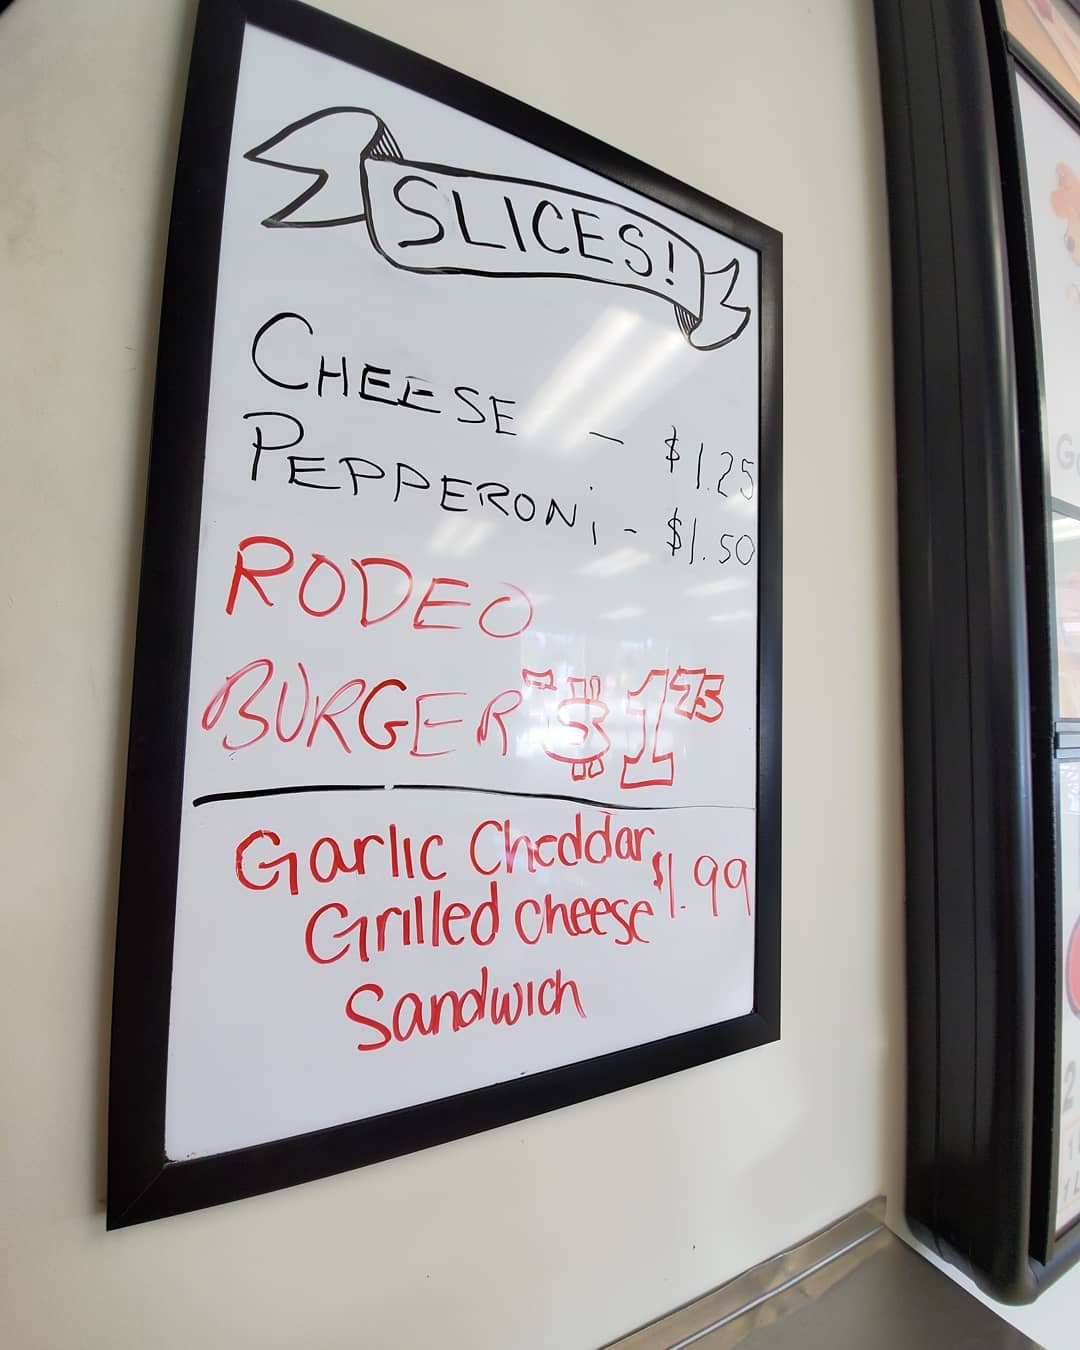 SLICES!
CHEESE - $1.25
PEPPERONi - $1.50
RODEO
BURGER - $1 75
Garlic Cheddar
Grilled cheese $1.99
Sandwich